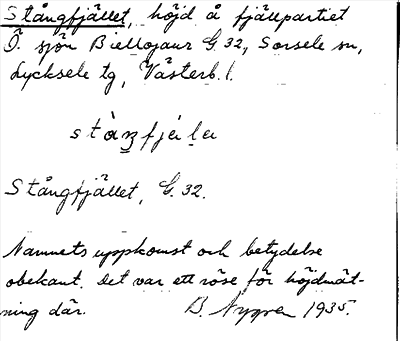 Stångfjället, höjd å fjällpartiet
Ö. sjön Biellojaur G.32, Sorsele sn,
Lycksele tg, Västerb. l.
Stångfjället, G.32.
Namnets uppkomst och betydelse
obekant. Det var ett röse för höjdmät-
ning där. B. Nygren 1935.